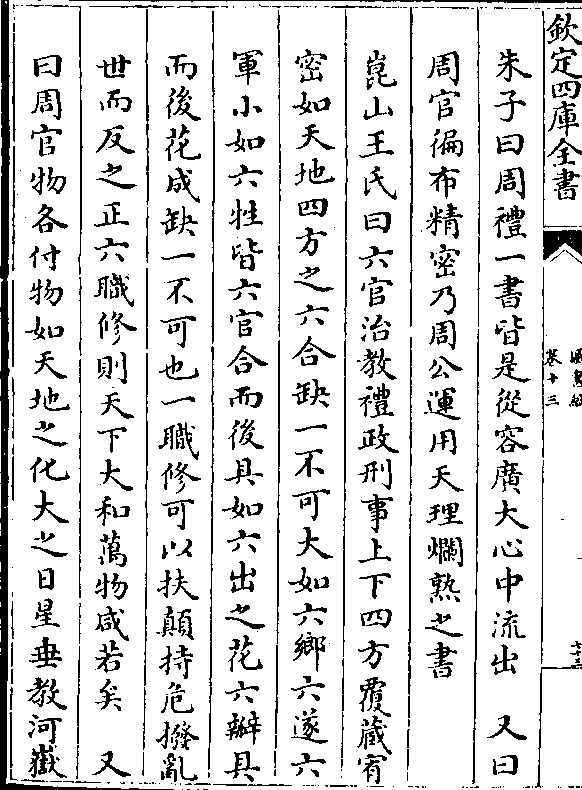 欽定四庫全書
卷十三
朱子曰周禮一書皆是從容廣大心中流出　又曰
周官徧布精密乃周公運用天理爛熟之書
崑山王氏曰六官治教禮政刑事上下四方覆藏宥
密如天地四方之六合缺一不可大如六鄉六遂六
軍小如六牲皆六官合而後具如六出之花六瓣具
而後花成缺一不可也一職修可以扶顛持危撥亂
世而反之正六職修則天下大和萬物咸若矣　又
曰周官物各付物如天地之化大之日星垂教河嶽